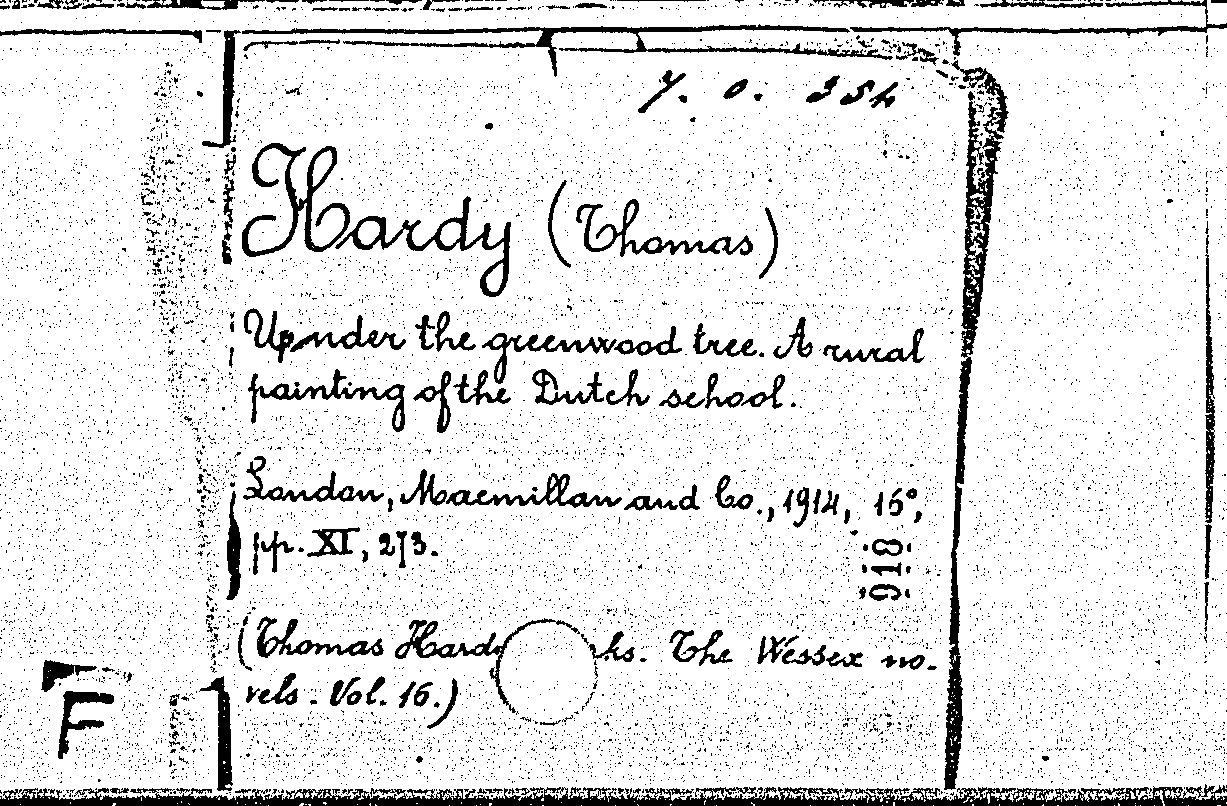 7. 0. 354
Hardy (Thomas)
Upnder the greenwood tree. A rural
painting of the Dutch school.
London, Macmillan and Co., 1914, 16°,
pp. XI, 273.
918
(Thomas Hard ks. The Wessex no-
vels. Vol. 16.)
F